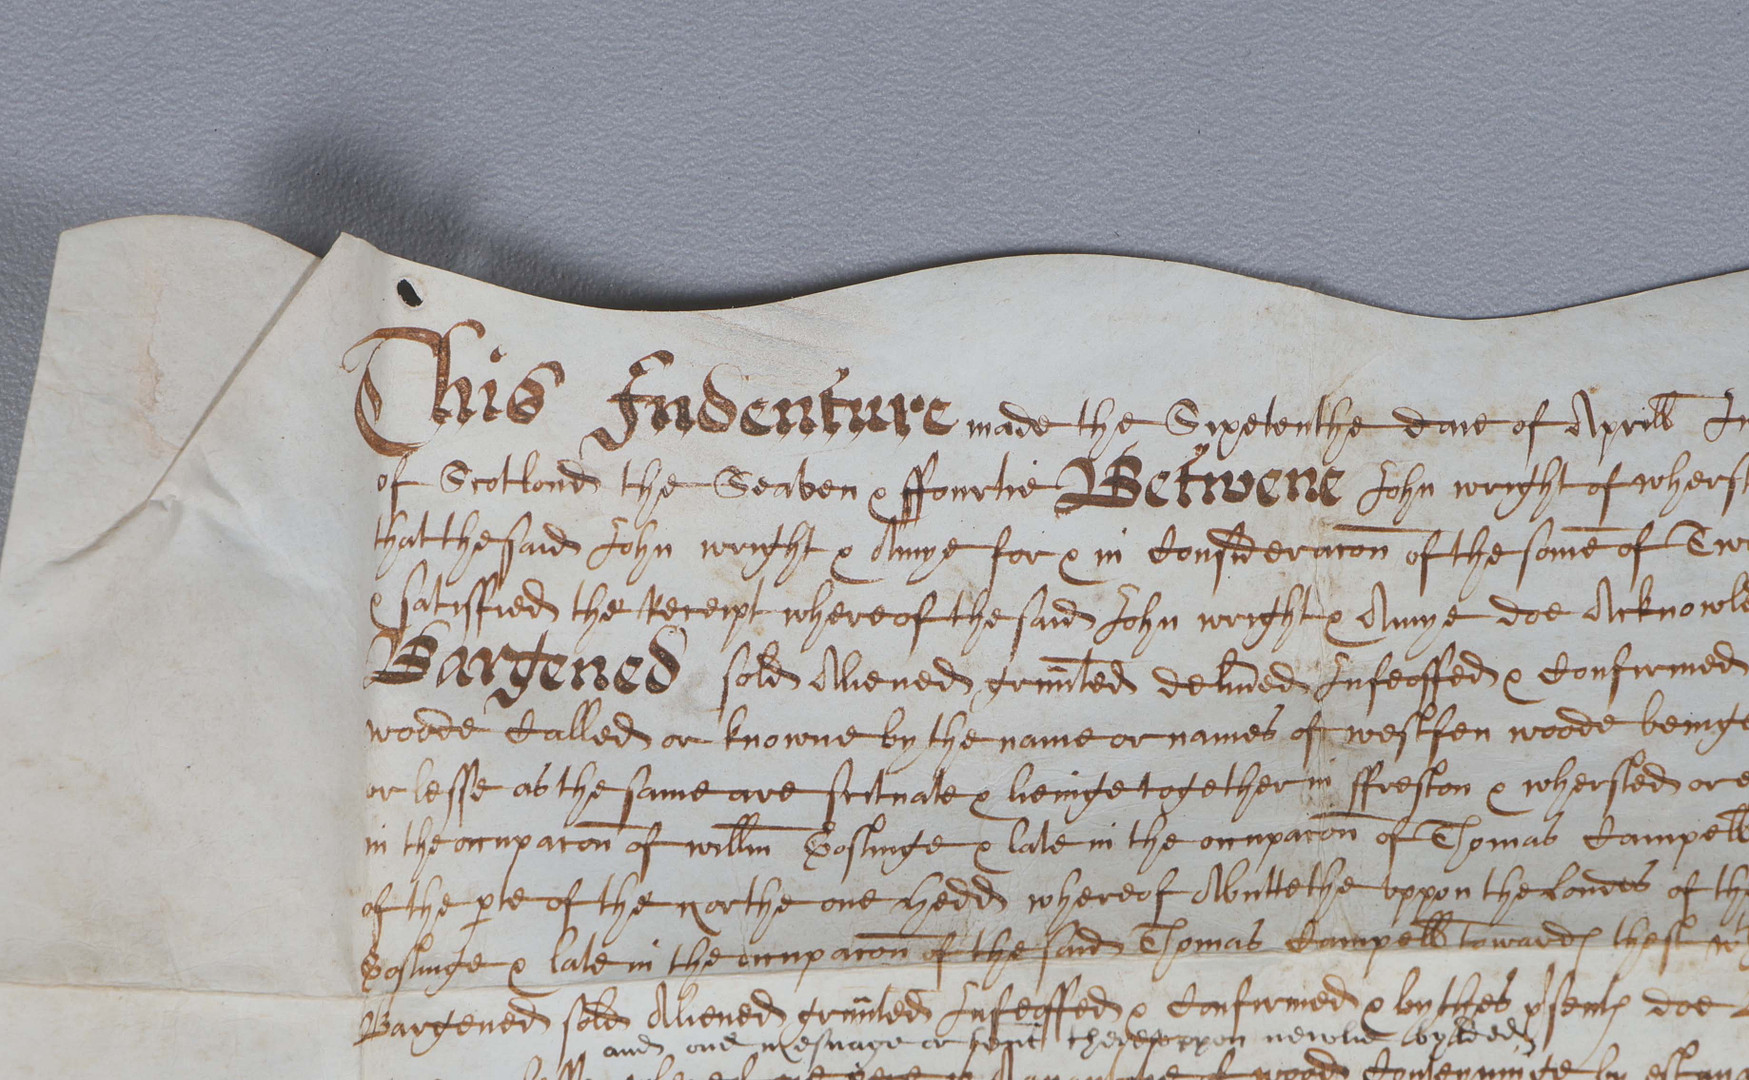 This Indenture made the Sixetenthe daie of Aprill In
of Scotland the Seaven & ffourtie Betwene John wright of wherst
that the said John wright & Amye for & in Consideracon of the some of Tw
& satisffied the Receipt whereof the said John wright & Amye doe Acknowle
Bargened sold Aliened graunted deliued Infeoffed & Confirmed
woode Called or knowne by the name or names of westfen woode beinge
or lesse as the same are scituate & lieinge together in ffreston & whersted or e
in the occupacon of willm Goslinge & late in the occupacon of Thomas Campell
of the pte of the northe one hedd whereof Abuttethe vppon the Landes of the
Goslinge & late in the occupacon of the said Thomas Campell towards thest
Bargened sold Aliened graunted Infeoffed & Confirmed & by thes psents doe
and one mesuage or tent thereuppon newlie bylded